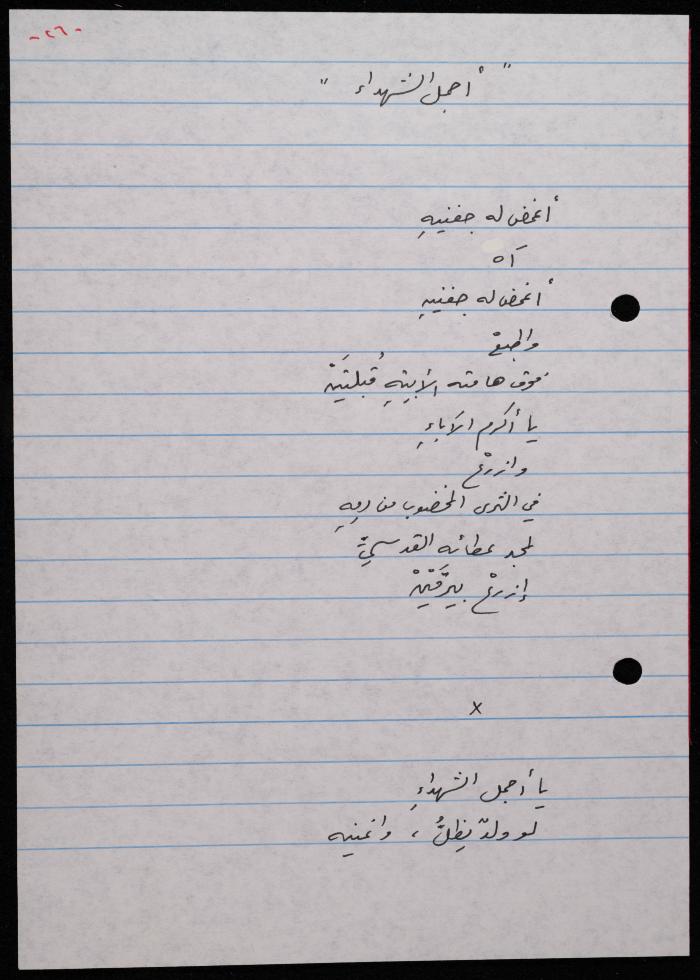 -٢٦-
" أجمل الشهداء "
أغمض له جفنيهِ
آه
أغمض له جفنيهِ
واطبعْ
فوق هامته الأبيّهِ قُبلتَيْن
يا أكرم الآباءِ
وازرعْ
في الثرى المخضوب من دمِهِ
لمجد عطائه القدسيِّ
إزرعْ بيرَقَيْنْ
x
يا أجمل الشهداءِ
لو ولدٌ يظلُّ ،